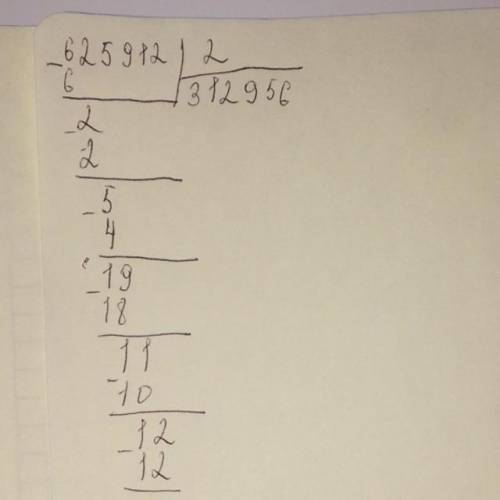 -625912 | 2
6 312956
-2
2
-5
4
-19
18
11
-10
-12
12